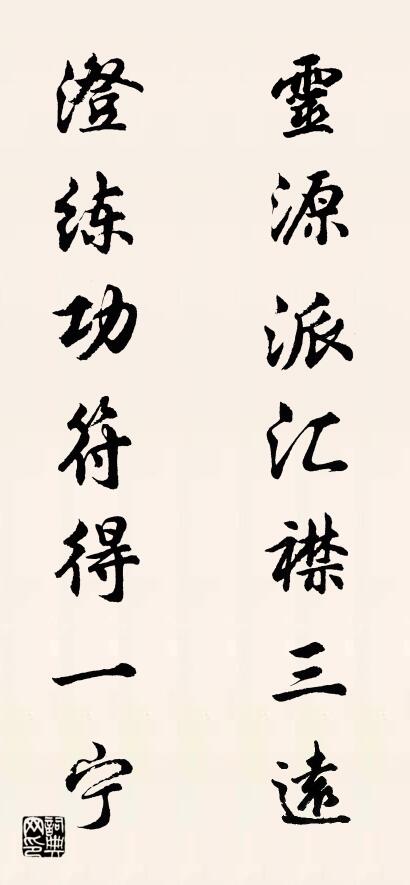 靈源派汇襟三遠
澄练功符得一宁
詞典网印